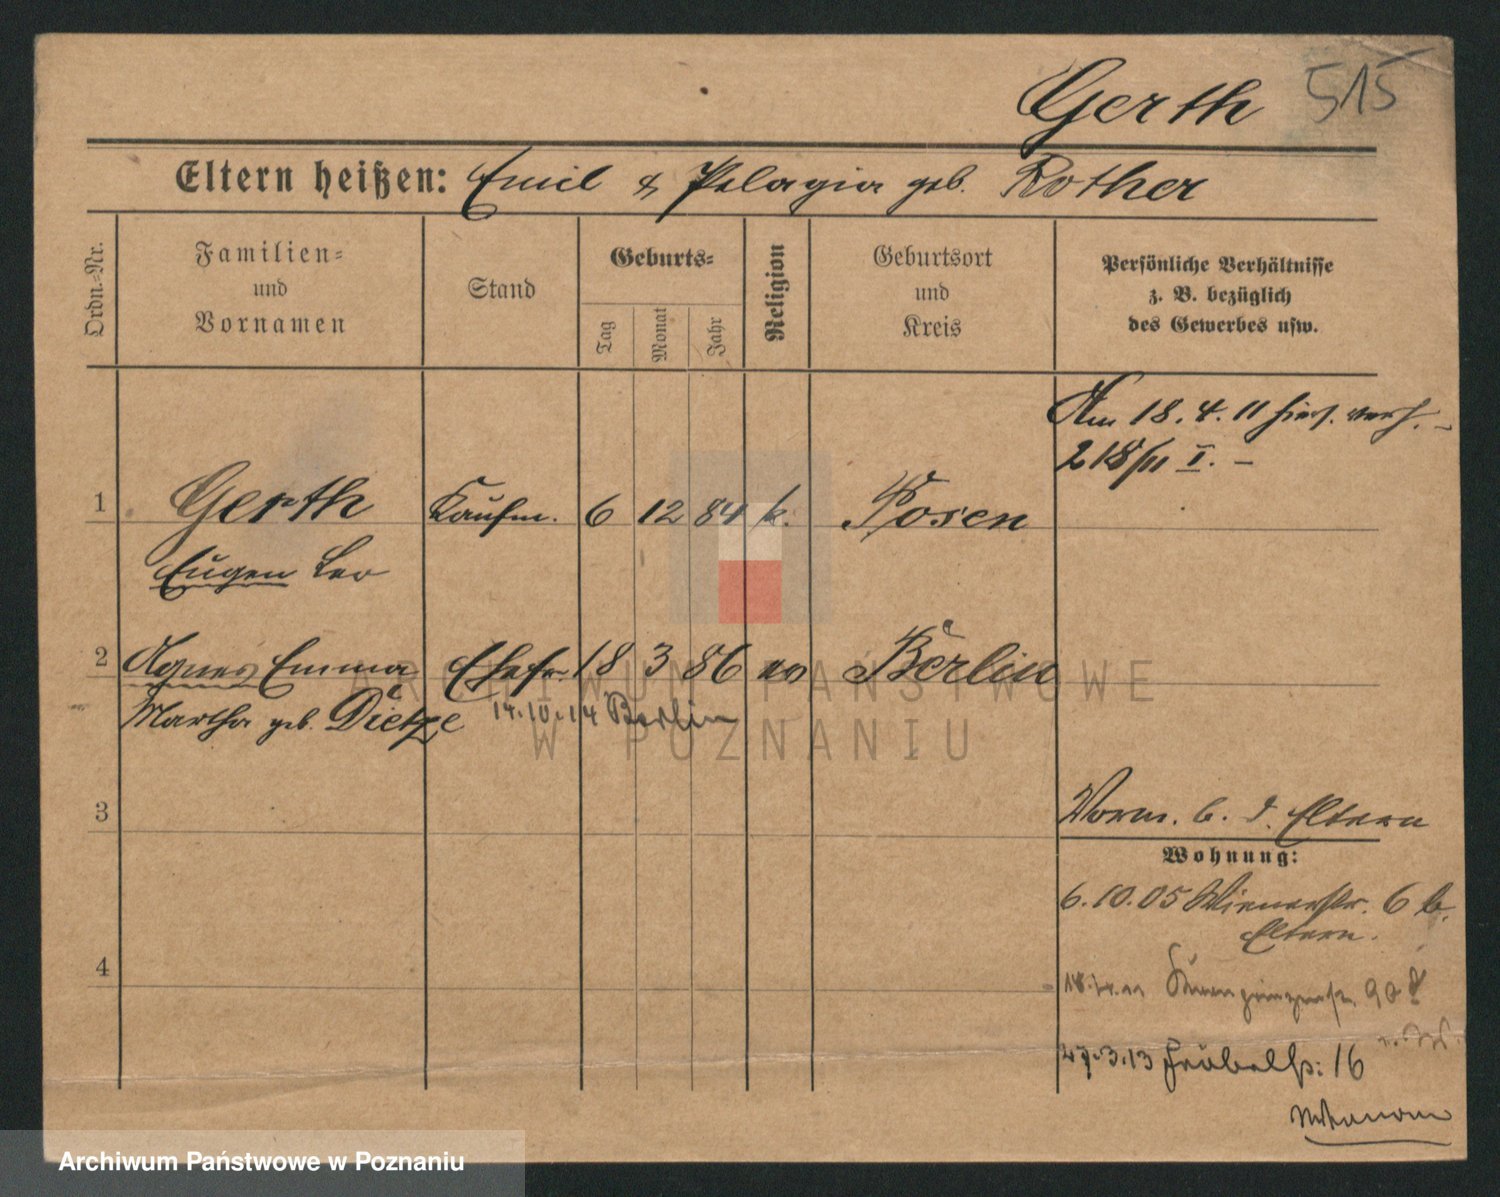 Gerth 515
Eltern heißen: Emil & Pelagia geb. Rother
Ordn.-Nr.
Familien-
und
Vornamen
Stand
Geburts-
Tag
Monat
Jahr
Religion
Geburtsort
und
Kreis
Persönliche Verhältnisse
z. B. bezüglich
des Gewerbes usw.
Am 18. 4. 11 hies. verh. –
218/11 I. –
1 Gerth Kaufm. 6 12 84 k. Posen
Eugen Leo
2 Agnes Emma Ehefr. 18 3 86 ev Berlin
Martha geb. Dietze 14.10.14 Berlin
3
Vorm. b. d. Eltern
Wohnung:
6.10.05 Wienerstr. 6 b.
Eltern.
4
18.4.11 Kronprinzenstr. 90
27.3.13 Fröbelstr: 16
ARCHIWUM PAŃSTWOWE
W POZNANIU
Archiwum Państwowe w Poznaniu